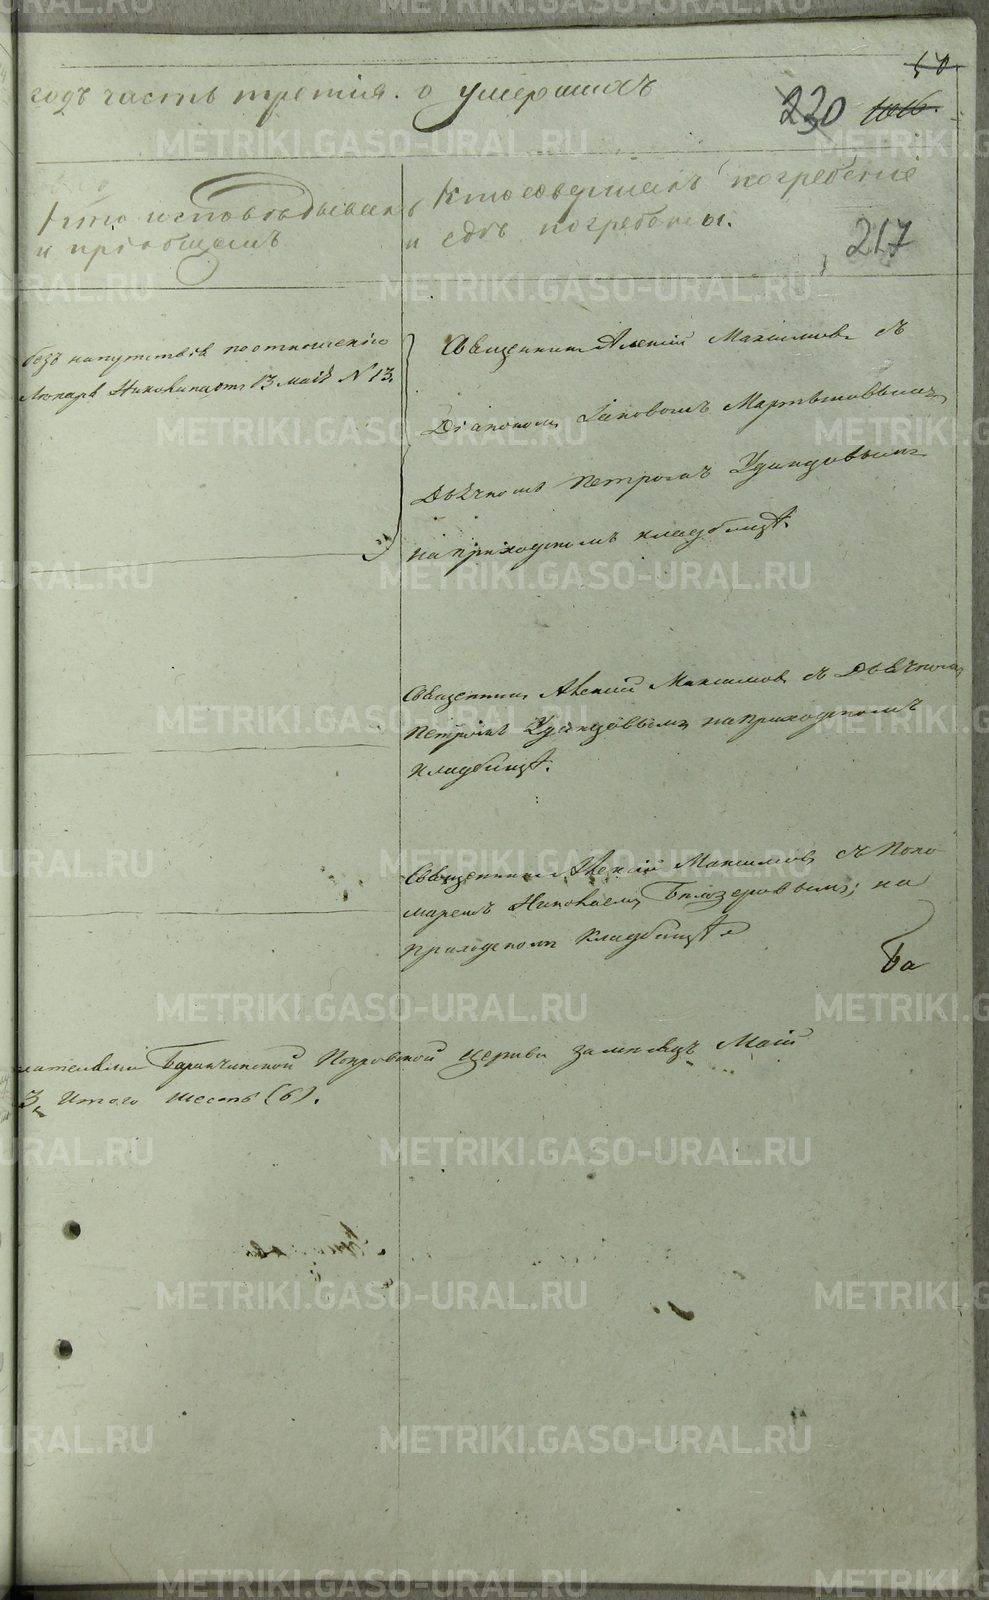 годъ часть третия. о умершихъ
50.
230 1016.
Кто исповѣдывалъ
и пріобщалъ
Кто совершалъ погребеніе
и гдѣ погребены.
217
безъ напутствія по отношенію
лекаря Никонина отъ 13 мая N 13.
Священникъ Алексій Максимовъ съ
Діакономъ Іаковомъ Мартышовымъ
Дьячкомъ Петромъ Удинцовымъ
на приходскомъ кладбищѣ.
Священникъ Алексій Максимовъ съ Дьячкомъ
Петромъ Удинцовымъ на приходскомъ
кладбищѣ.
Священникъ Алексій Максимовъ съ Поно
маремъ Николаемъ Бѣлозеровымъ; на
приходскомъ кладбищѣ.
Ба
Баранчинской Покровской церкви за мѣсяцъ Май
3, Итого шесть (6).
METRIKI.GASO-URAL.RU